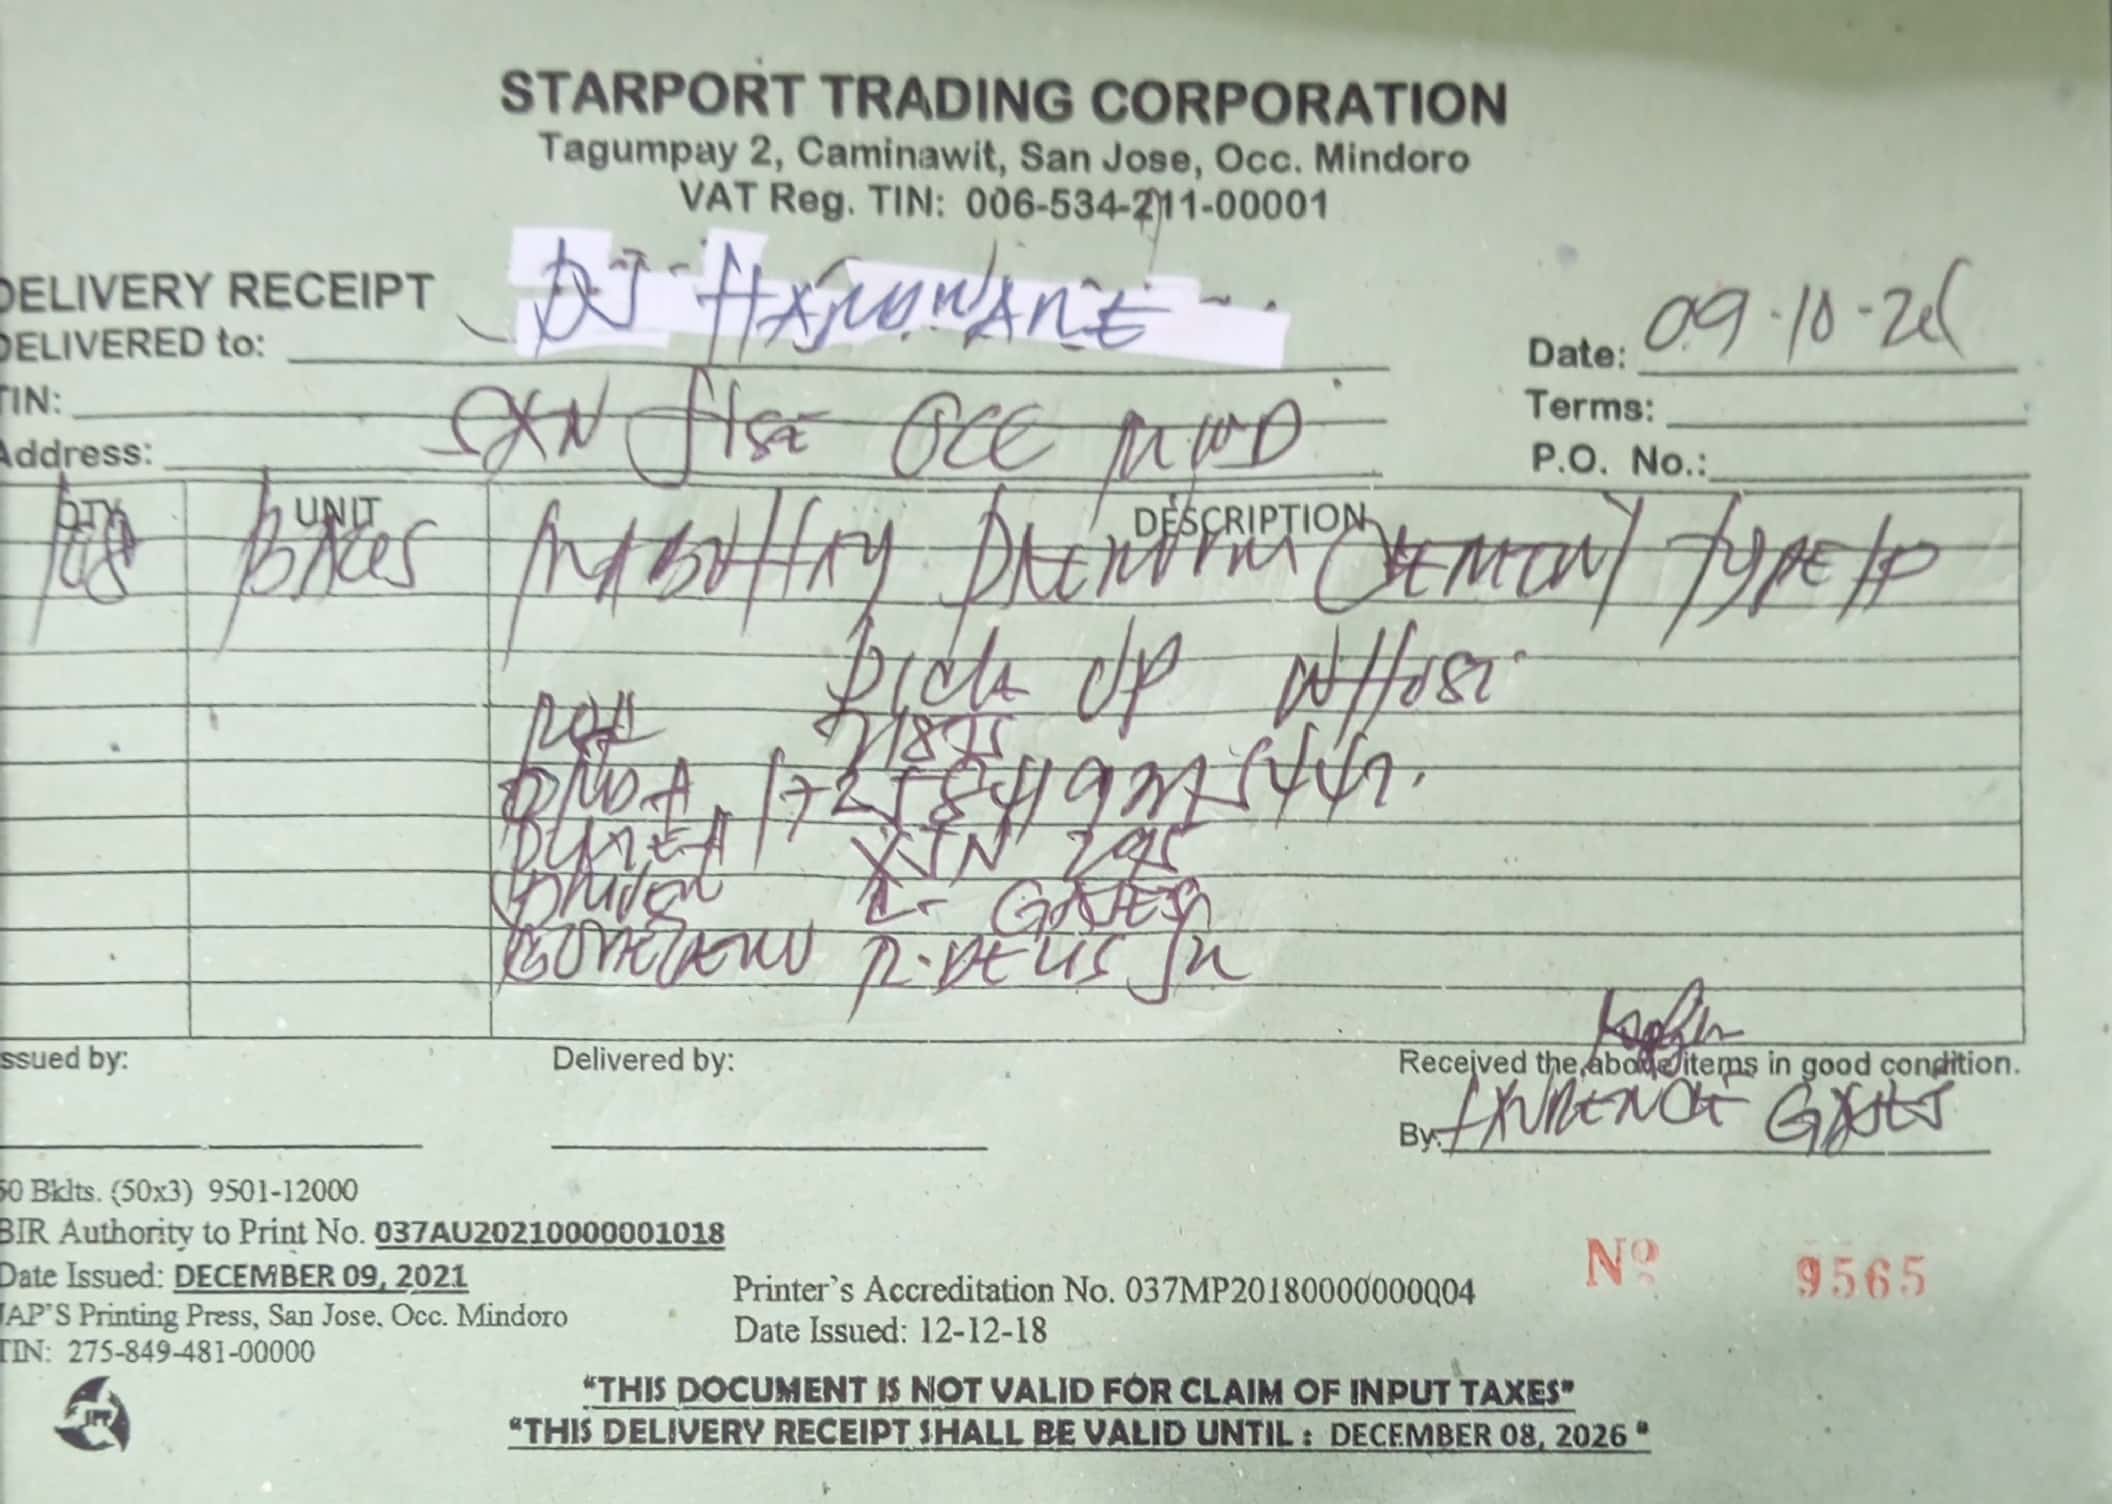 STARPORT TRADING CORPORATION
Tagumpay 2, Caminawit, San Jose, Occ. Mindoro
VAT Reg. TIN: 006-534-211-00001
DELIVERY RECEIPT
DELIVERED to: DJ HARDWARE
Date:
TIN:
Terms:
Address: SAN JOSE OCC MND
P.O. No.:
QTY UNIT DESCRIPTION
BAGS CEMENT TYPE 1P
PICK UP WHOSE
XJN 295
DRIVER L. GATES
R. DEUS JR
Issued by:
Delivered by:
Received the above items in good condition.
By: LAURENCE GATES
50 Bklts. (50x3) 9501-12000
BIR Authority to Print No. 037AU20210000001018
Date Issued: DECEMBER 09, 2021
JAP'S Printing Press, San Jose, Occ. Mindoro
TIN: 275-849-481-00000
Printer's Accreditation No. 037MP20180000000004
Date Issued: 12-12-18
Nº 9565
"THIS DOCUMENT IS NOT VALID FOR CLAIM OF INPUT TAXES"
"THIS DELIVERY RECEIPT SHALL BE VALID UNTIL : DECEMBER 08, 2026 "